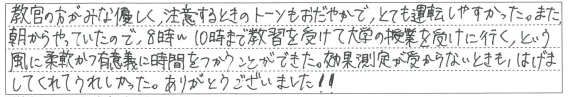 教官の方がみな優しく,注意するときのトーンもおだやかで,とても運転しやすかった。また,
朝からやっていたので,8時〜10時まで教習を受けて大学の授業を受けに行く,という
風に柔軟かつ有意義に時間をつかうことができた。効果測定が受からないときも,はげま
してくれてうれしかった。ありがとうございました!!